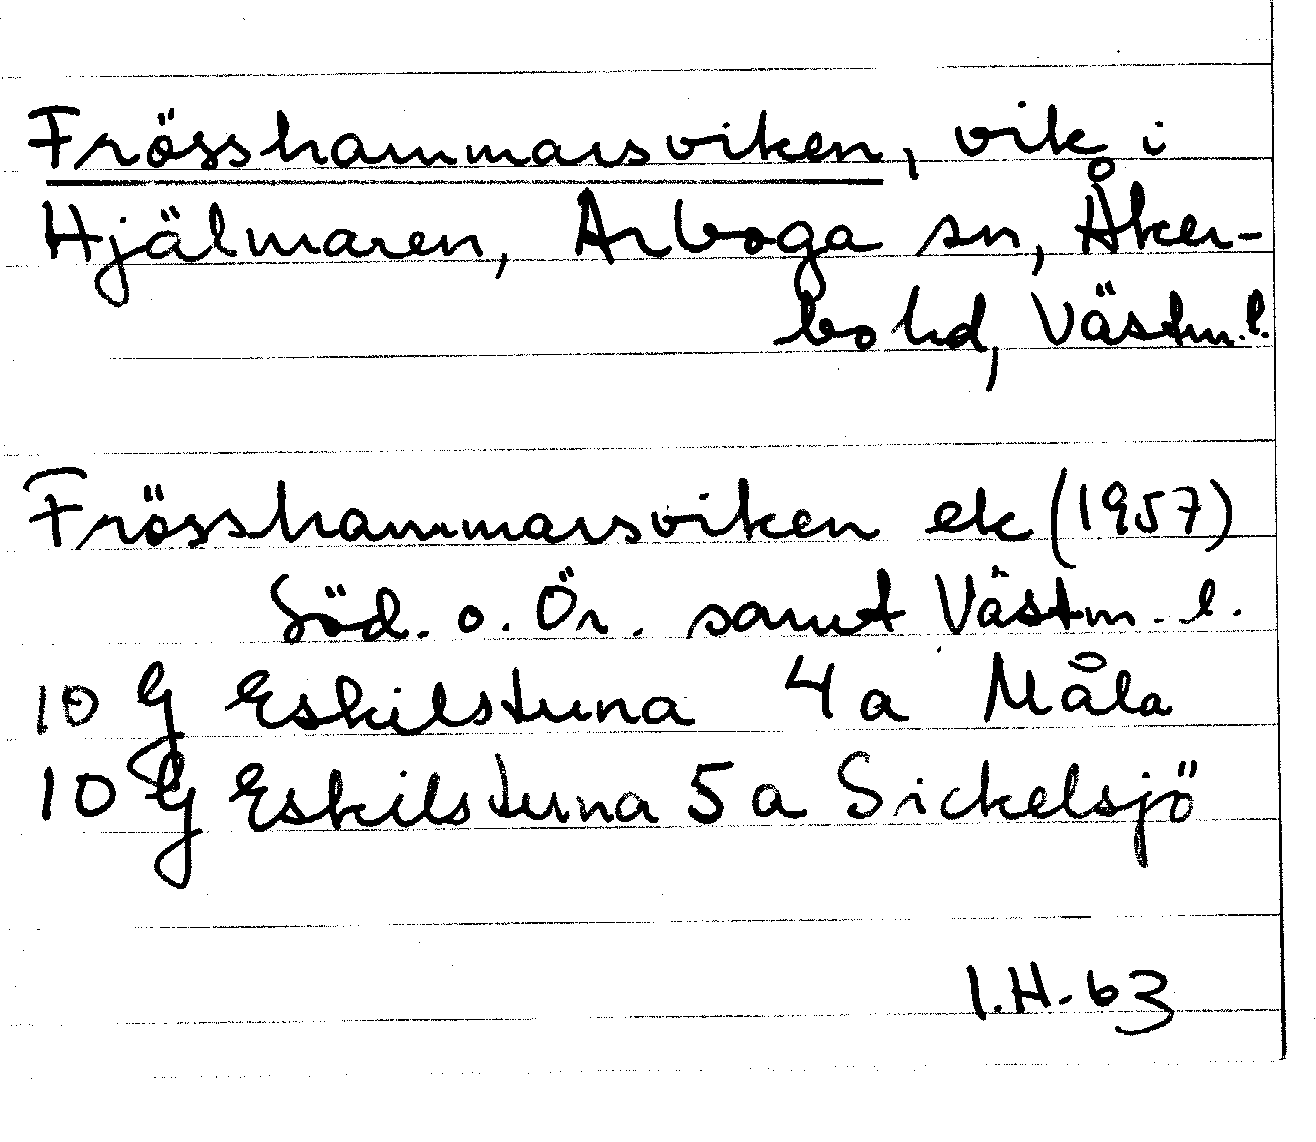 Frösshammarsviken, vik i
Hjälmaren, Arboga sn, Åker-
bo hd, Västm. l.
Frösshammarsviken ek (1957)
Söd. o. Ör. samt Västm. l.
10 G Eskilstuna 4a Måla
10 G Eskilstuna 5a Sickelsjö
I.H. 63